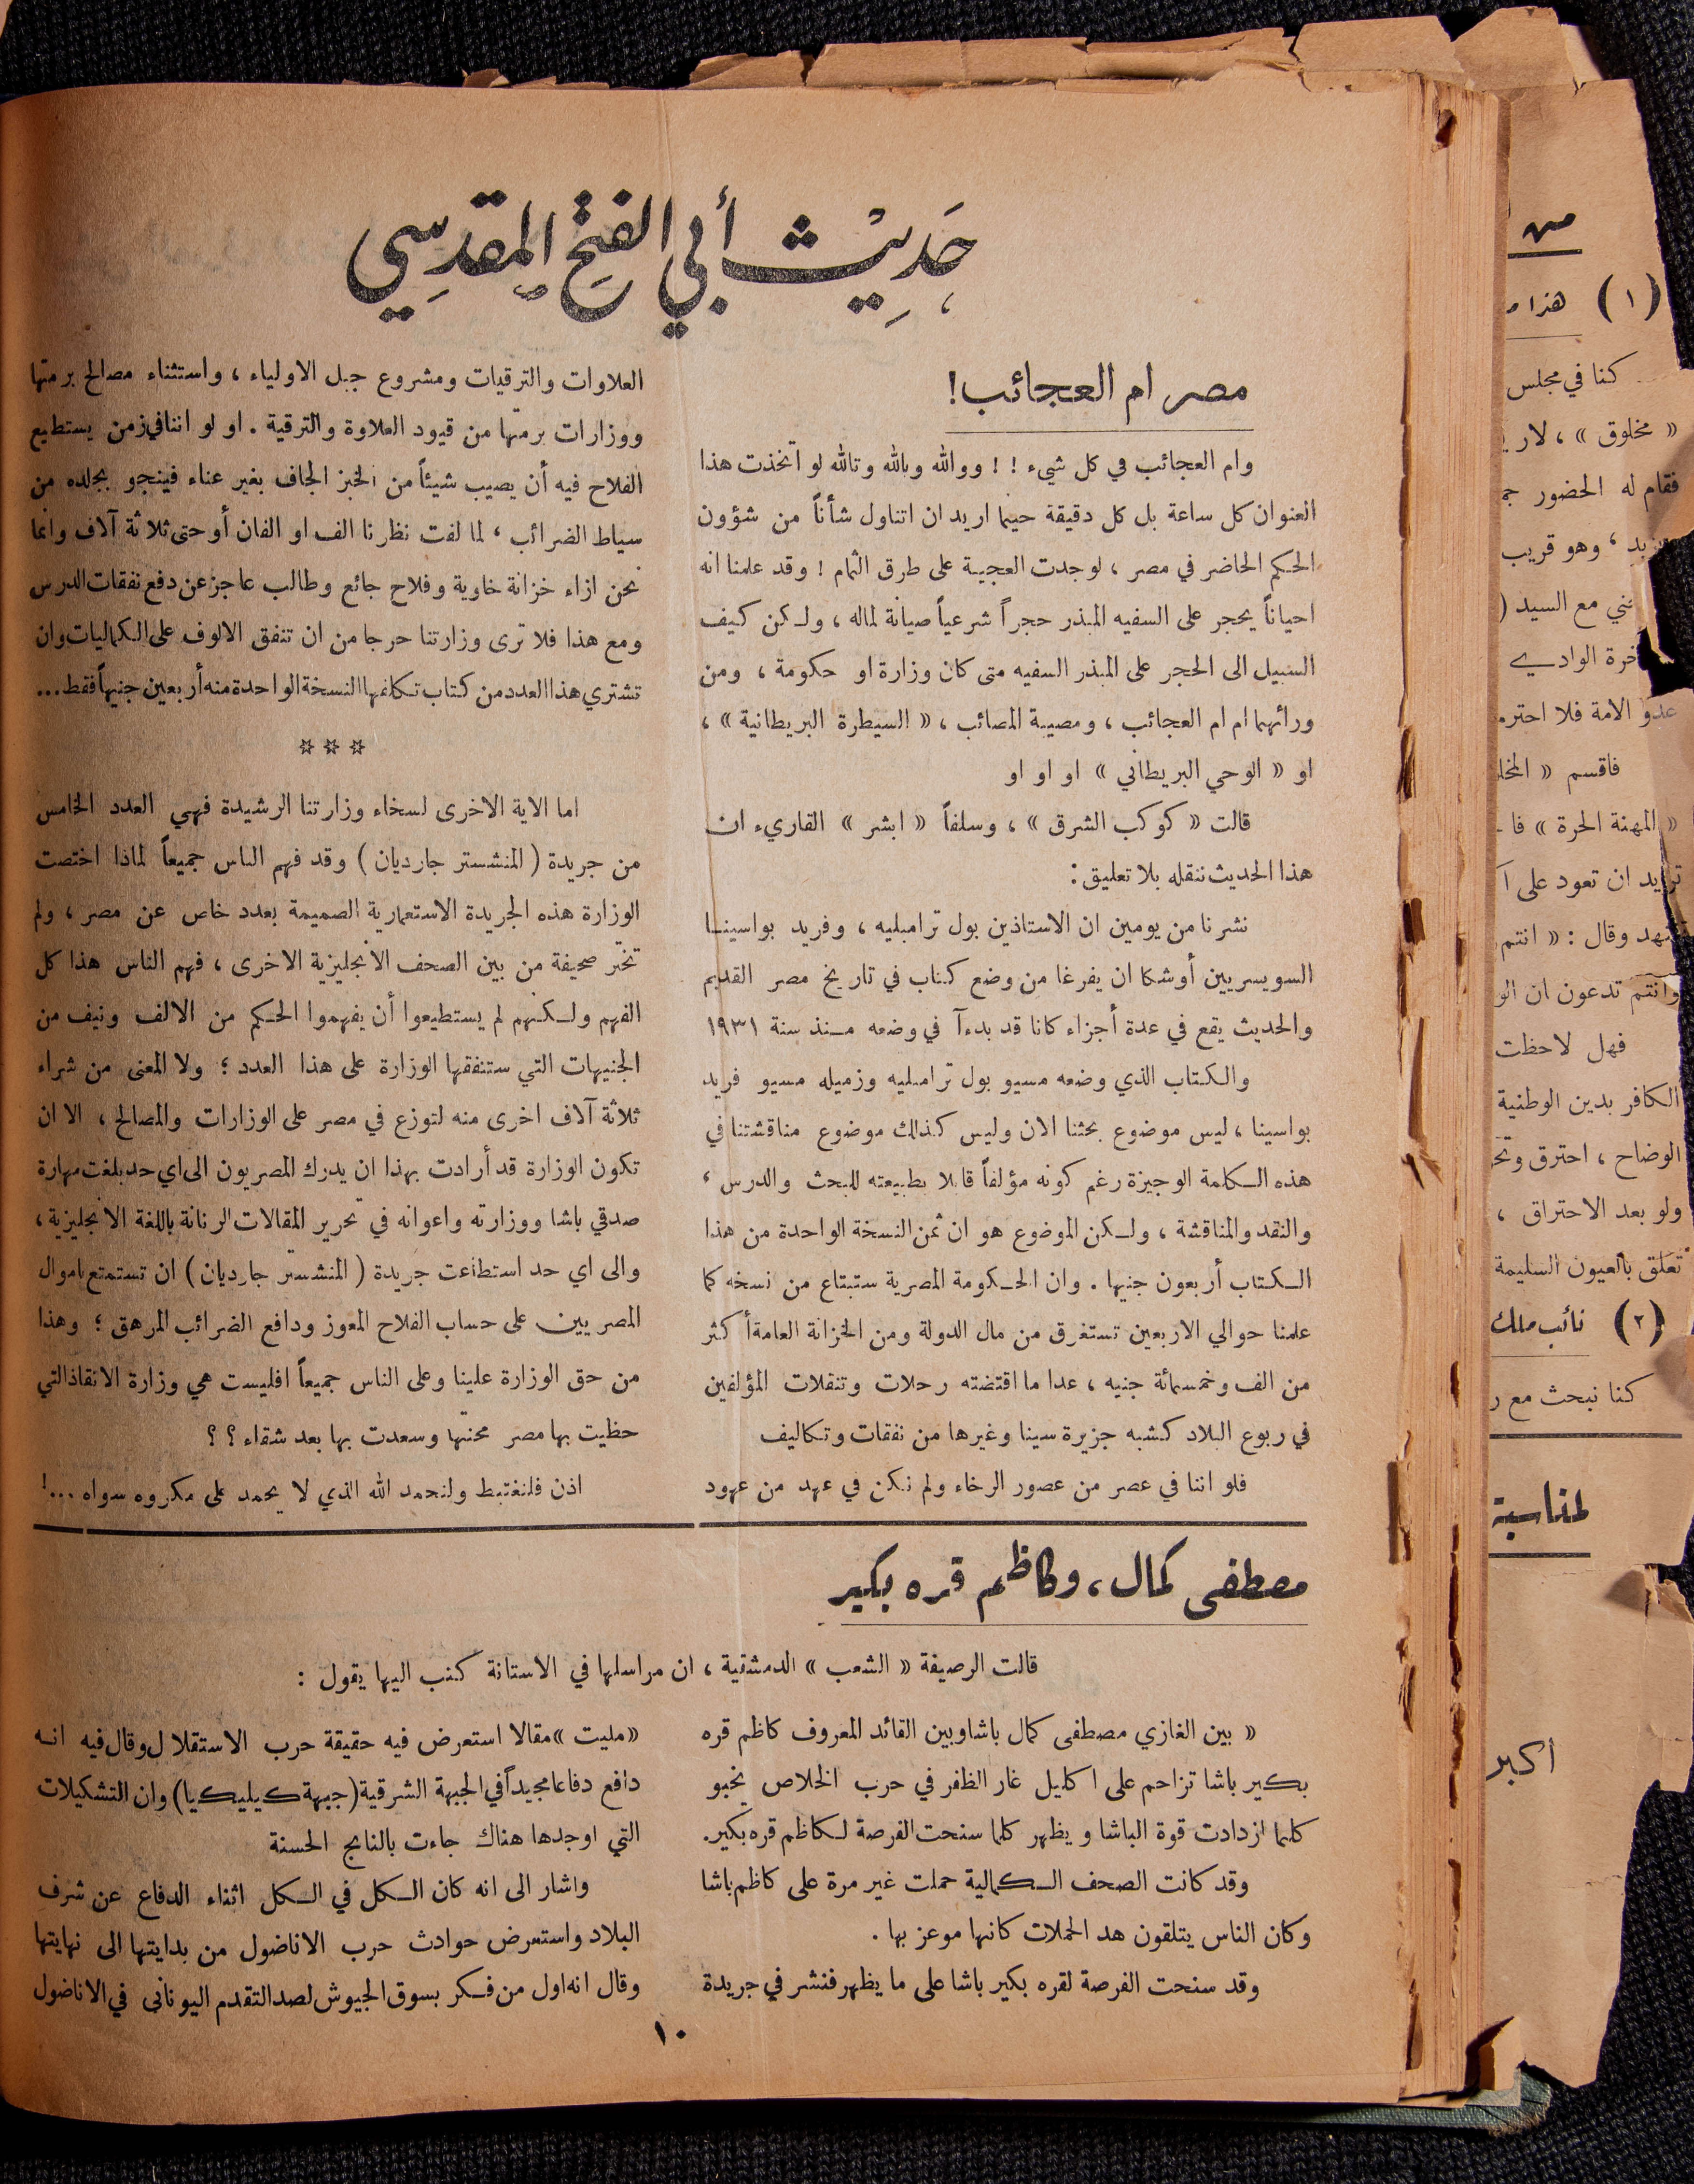 حَدِيْث أبي الفتح المقدِسي
مصر ام العجائب!
وام العجائب في كل شيء ! ! ووالله وبالله وتالله لو اتخذت هذا
العنوان كل ساعة بل كل دقيقة حينما اريد ان اتناول شأناً من شؤون
الحكم الحاضر في مصر ، لوجدت العجيبة على طرق الثمام ! وقد علمنا انه
احياناً يحجر على السفيه المبذر حجراً شرعياً صيانة لماله ، ولكن كيف
السبيل الى الحجر على المبذر السفيه متى كان وزارة او حكومة ، ومن
ورائهما ام ام العجائب ، ومصيبة المصائب ، « السيطرة البريطانية » ،
او « الوحي البريطاني » او او او
قالت « كوكب الشرق » ، وسلفاً « ابشر » القاريء ان
هذا الحديث ننقله بلا تعليق :
نشرنا من يومين ان الاستاذين بول ترامبليه ، وفريد بواسينا
السويسريين أوشكا ان يفرغا من وضع كتاب في تاريخ مصر القديم
والحديث يقع في عدة أجزاء كانا قد بدءآ في وضعه منذ سنة ١٩٣١
والكتاب الذي وضعه مسيو بول ترامبليه وزميله مسيو فريد
بواسينا ، ليس موضوع بحثنا الان وليس كذلك موضوع مناقشتنا في
هذه الكلمة الوجيزة رغم كونه مؤلفاً قابلا بطبيعته للبحث والدرس ،
والنقد والمناقشة ، ولكن الموضوع هو ان ثمن النسخة الواحدة من هذا
الكتاب أربعون جنيها . وان الحكومة المصرية ستبتاع من نسخه كما
علمنا حوالي الاربعين تستغرق من مال الدولة ومن الخزانة العامة أكثر
من الف وخمسمائة جنيه ، عدا ما اقتضته رحلات وتنقلات المؤلفين
في ربوع البلاد كشبه جزيرة سينا وغيرها من نفقات وتكاليف
فلو اننا في عصر من عصور الرخاء ولم نكن في عهد من عهود
العلاوات والترقيات ومشروع جبل الاولياء ، واستثناء مصالح برمتها
ووزارات برمتها من قيود العلاوة والترقية . او لو اننا في زمن يستطيع
الفلاح فيه أن يصيب شيئاً من الخبز الجاف بغير عناء فينجو بجلده من
سياط الضرائب ، لما لفت نظرنا الف او الفان أو حتى ثلاثة آلاف وانما
نحن ازاء خزانة خاوية وفلاح جائع وطالب عاجز عن دفع نفقات الدرس
ومع هذا فلا ترى وزارتنا حرجا من ان تنفق الالوف على الكماليات وان
تشتري هذا العدد من كتاب تكلفها النسخة الواحدة منه أربعين جنيهاً فقط ...
☆ ☆ ☆
اما الاية الاخرى لسخاء وزارتنا الرشيدة فهي العدد الخامس
من جريدة ( المنشستر جارديان ) وقد فهم الناس جميعاً لماذا اختصت
الوزارة هذه الجريدة الاستعمارية الصميمة بعدد خاص عن مصر ، ولم
تختر صحيفة من بين الصحف الانجليزية الاخرى ، فهم الناس هذا كل
الفهم ولكنهم لم يستطيعوا أن يفهموا الحكم من الالف ونيف من
الجنيهات التي ستنفقها الوزارة على هذا العدد ؛ ولا المعنى من شراء
ثلاثة آلاف اخرى منه لتوزع في مصر على الوزارات والمصالح ، الا ان
تكون الوزارة قد أرادت بهذا ان يدرك المصريون الى اي حد بلغت مهارة
صدقي باشا ووزارته واعوانه في تحرير المقالات الرنانة باللغة الانجليزية ،
والى اي حد استطاعت جريدة ( المنشستر جارديان ) ان تستمتع باموال
المصريين على حساب الفلاح المعوز ودافع الضرائب المرهق ؛ وهذا
من حق الوزارة علينا وعلى الناس جميعاً افليست هي وزارة الانقاذ التي
حظيت بها مصر محنتها وسعدت بها بعد شقاء ؟ ؟
اذن فلنغتبط ولنحمد الله الذي لا يحمد على مكروه سواه ...!
مصطفى كمال ، وكاظم قره بكير
قالت الرصيفة « الشعب » الدمشقية ، ان مراسلها في الاستانة كتب اليها يقول :
« بين الغازي مصطفى كمال باشا وبين القائد المعروف كاظم قره
بكير باشا تزاحم على اكليل غار الظفر في حرب الخلاص يخبو
كلما ازدادت قوة الباشا ويظهر كلما سنحت الفرصة لكاظم قره بكير.
وقد كانت الصحف الكمالية حملت غير مرة على كاظم باشا
وكان الناس يتلقون هد الحملات كانها موعز بها .
وقد سنحت الفرصة لقره بكير باشا على ما يظهر فنشر في جريدة
«مليت » مقالا استعرض فيه حقيقة حرب الاستقلال وقال فيه انه
دافع دفاعا مجيداً في الجبهة الشرقية (جبهة كيليكيا) وان التشكيلات
التي اوجدها هناك جاءت بالنايج الحسنة
واشار الى انه كان الكل في الكل اثناء الدفاع عن شرف
البلاد واستعرض حوادث حرب الاناضول من بدايتها الى نهايتها
وقال انه اول من فكر بسوق الجيوش لصد التقدم اليوناني في الاناضول
١٠
من
(١) هذا
كنا في مجلس
« مخلوق » ،
فقام له الحضور
وهو قريب
مع السيد (
الوادي
عدو الامة فلا
فاقسم «
« المهنة الحرة »
تريد ان تعود على
وقال : « انتم
وانتم تدعون ان
فهل لاحظت
الكافر بدين الوطنية
الوضاح ، احترق
ولو بعد الاحتراق ،
تعلق بالعيون السليمة
(٢) نائب ملك
كنا نبحث مع
لمناسبة
أكبر